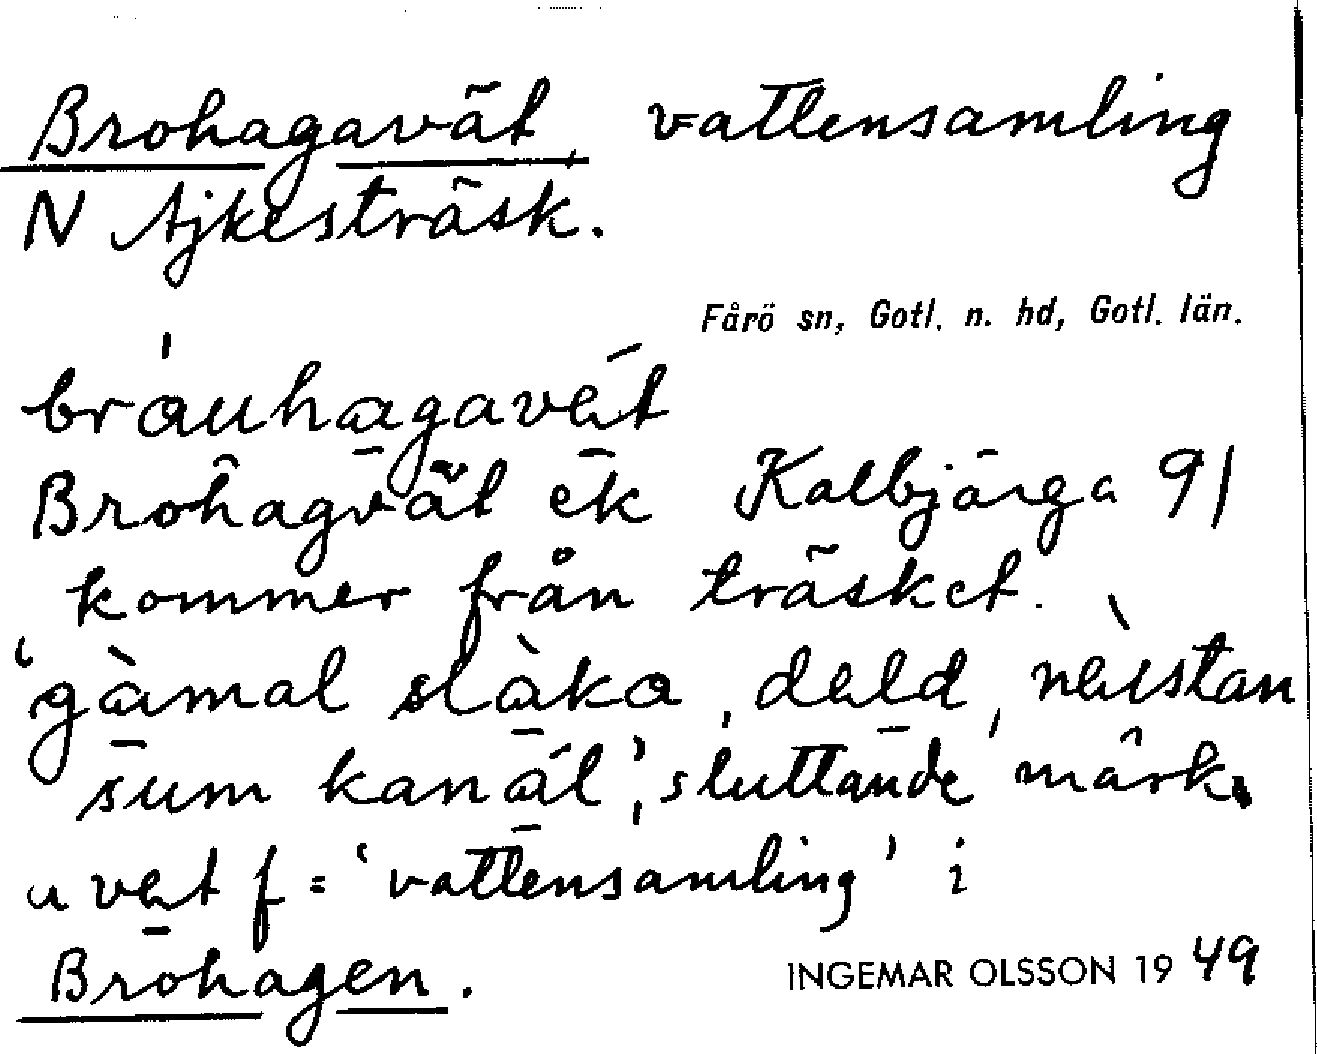 Brohagavät, vattensamling
N Ajkesträsk.
Fårö sn, Gotl. n. hd, Gotl. län.
bráuhagavæt
Brohagvät ek Kalbjärga 91
kommer från träsket.
‘gàmal slàka, dæld, næstan
sum kanál’, sluttande mark.
u væt f = ‘vattensamling’ i
Brohagen.
INGEMAR OLSSON 1949